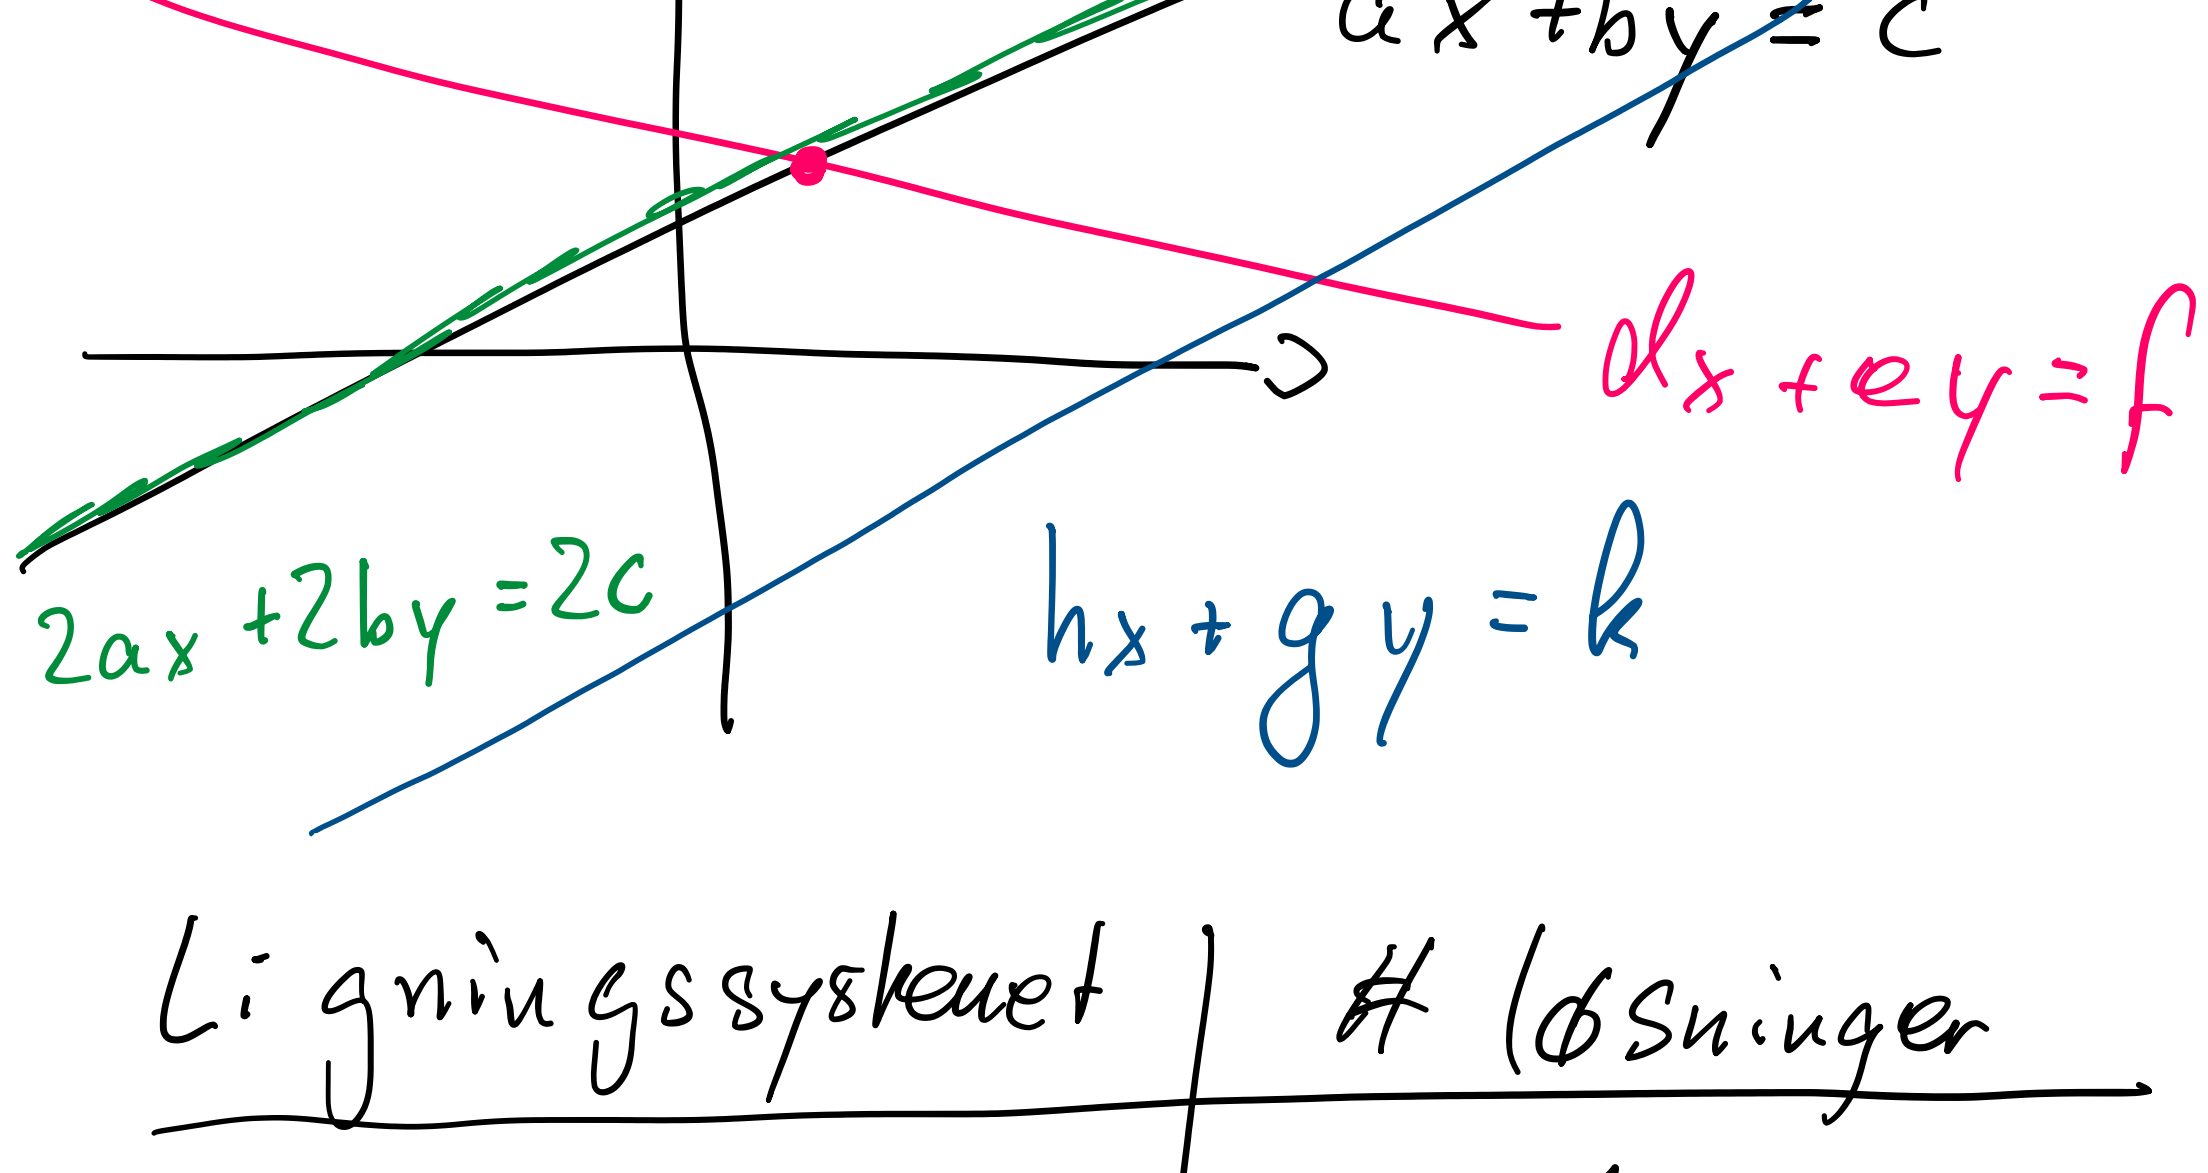 ax + by = c
dx + ey = f
2ax + 2by = 2c
hx + gy = k
Ligningssystemet | # løsninger